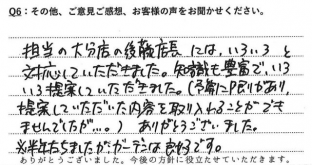 Q6：その他、ご意見ご感想、お客様の声をお聞かせください。
担当の大分店の後藤店長には、いろいろと
対応していただきました。知識も豊富で、いろ
いろ提案していただきました。（予算に限りがあり、
提案していただいた内容を取り入れることができ
ませんでしたが…。）ありがとうございました。
※半年たちましたがガーデンは良好です。
ありがとうございました。今後の方針に役立たせていただきます。